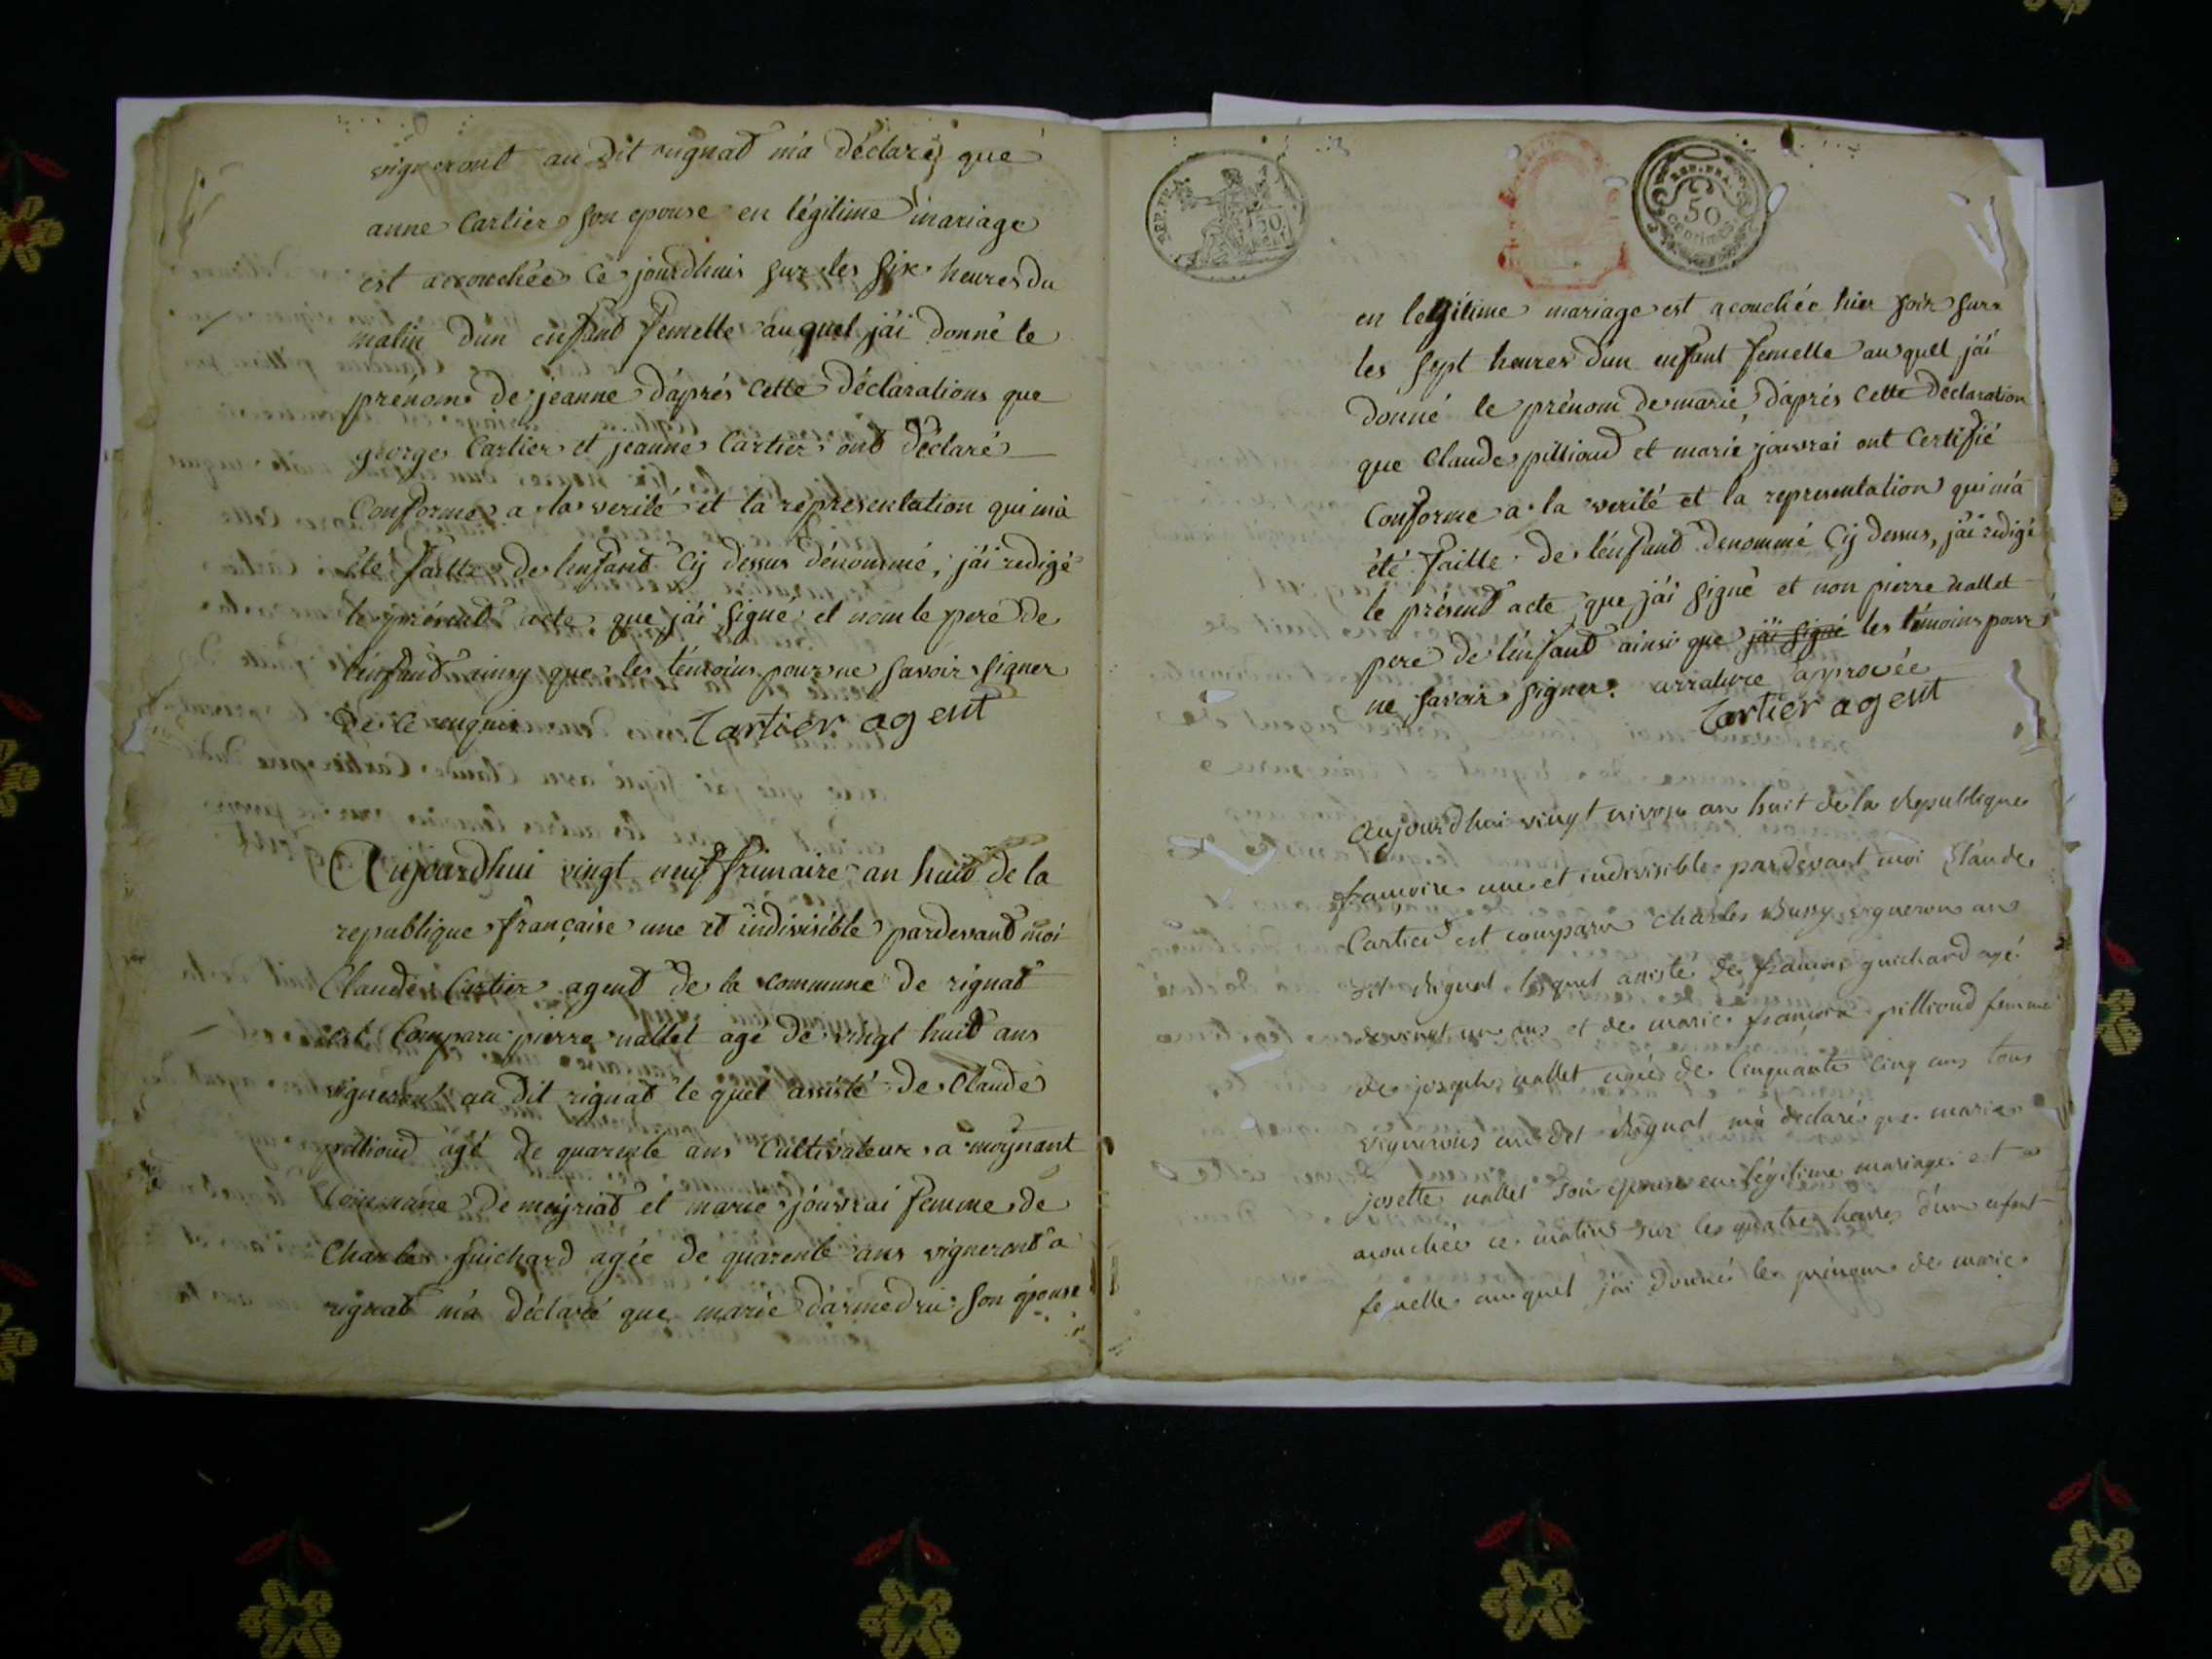 vigneront au dit rignat m'a déclaré que
anne Cartier son epouse en légitime mariage
est accouchée ce jourdhuis sur les six heures du
matin dun enfant femelle au quel j'ai donné le
prénom de jeanne d'aprés cette déclarations que
george Cartier et jeanne Cartier ont déclaré
Conforme a la verité et la representation qui m'a
été faitte de lenfant cy dessus dénommé, j'ai redigé
le présent acte que j'ai signé et nom le pere de
l'enfant ainsy que les témoins pour ne savoir signer
de ce enquis Cartier agent
Aujourdhui vingt neuf frimaire an huit de la
republique française une et indivisible pardevant moi
Claude Cartier agent de la commune de rignat
est Comparu pierre nallet agé de vingt huit ans
vigneront au dit rignat le quel assisté de Claude
pillioud agé de quarente ans Cultivateur a moynant
Commune de meyriat et marie jouvrai femme de
Charles guichard agée de quarente ans vigneront a
rignat m'a déclaré que marie darmedru son épouse
REP. FRA.
REP. FRA.
50
centimes
en legitime mariage est acouchée hier soir sur
les sept heures d'un enfant femelle au quel j'ai
donné le prénom de marie, d'aprés cette déclaration
que Claude pillioud et marie jouvrai ont Certifié
Conforme a la verité et la representation qui m'a
été faitte de l'enfant denommé cy dessus, j'ai redigé
le présent acte que j'ai signé et non pierre nallet
pere de l'enfant ainsi que j'ai signé les témoins pour
ne savoir signer. arrature approvée
Cartier agent
Aujourdhui vingt nivose an huit de la republique
françoise une et indivisible pardevant moi Claude
Cartier est comparu Charles Buny vigneron au
dit rignat lequel assisté de françois guichard agé
de vingt un ans et de marie françoise pillioud femme
de joseph nallet agée de Cinquante cinq ans tous
vignerons au dit rignat m'a declaré que marie
josette nallet son epouse en légitime mariage est
acouchée ce matin sur les quatre heures d'un enfant
femelle auquel j'ai donné le prénom de marie